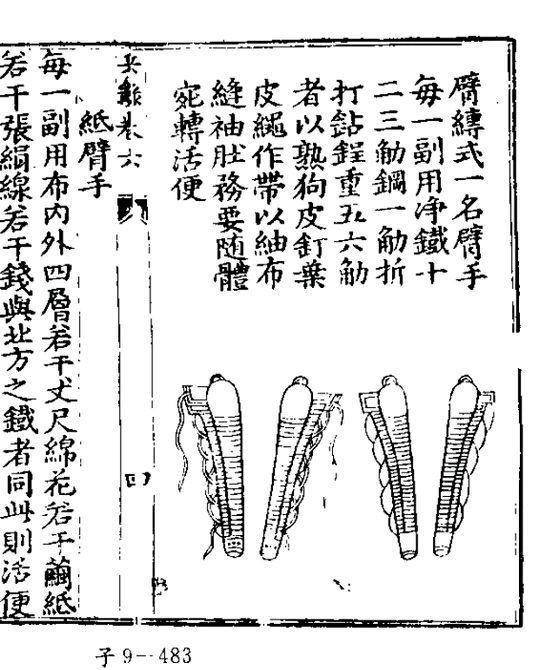 臂縳式一名臂手
每一副用净鐵十
二三觔鋼一觔折
打鉆鋥重五六觔
者以熟狗皮釘葉
皮繩作帶以紬布
縫袖肚務要随體
宛轉活便
卷六
四
紙臂手
每一副用布内外四層若干丈尺綿花若干繭紙
若干張絹線若干錢與北方之鐵者同此則活便
子9-483